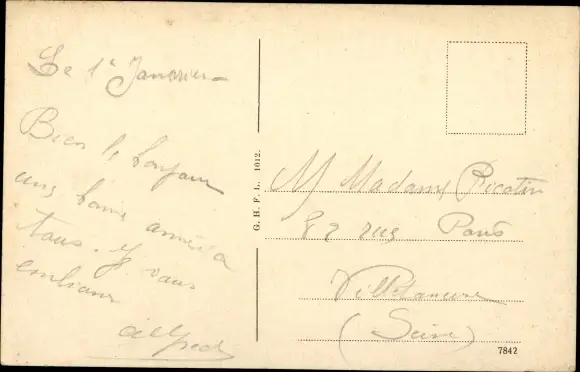 Le 1e Janvier
Bien le bonjour
une bonne année a
tous. Je vous
embrasse
Alfred
G. H. F. L. 1012.
M Madame Picotin
82 rue Paris
Villetaneuse
(Seine)
7842